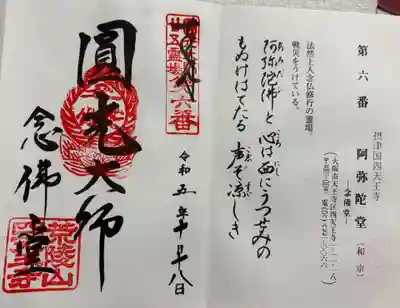 第六番
摂津国四天王寺
阿弥陀堂 (和宗)
―念佛堂―
(大阪市天王寺区四天王寺一-一-八
法然上人念仏修行の霊場。
戦災をうけている。
阿弥陀佛と心は西にうつせみの
もぬけはてたる声ぞ涼しき
令和五年十月十八日
六番
圓光大師
念佛堂
荒陵山